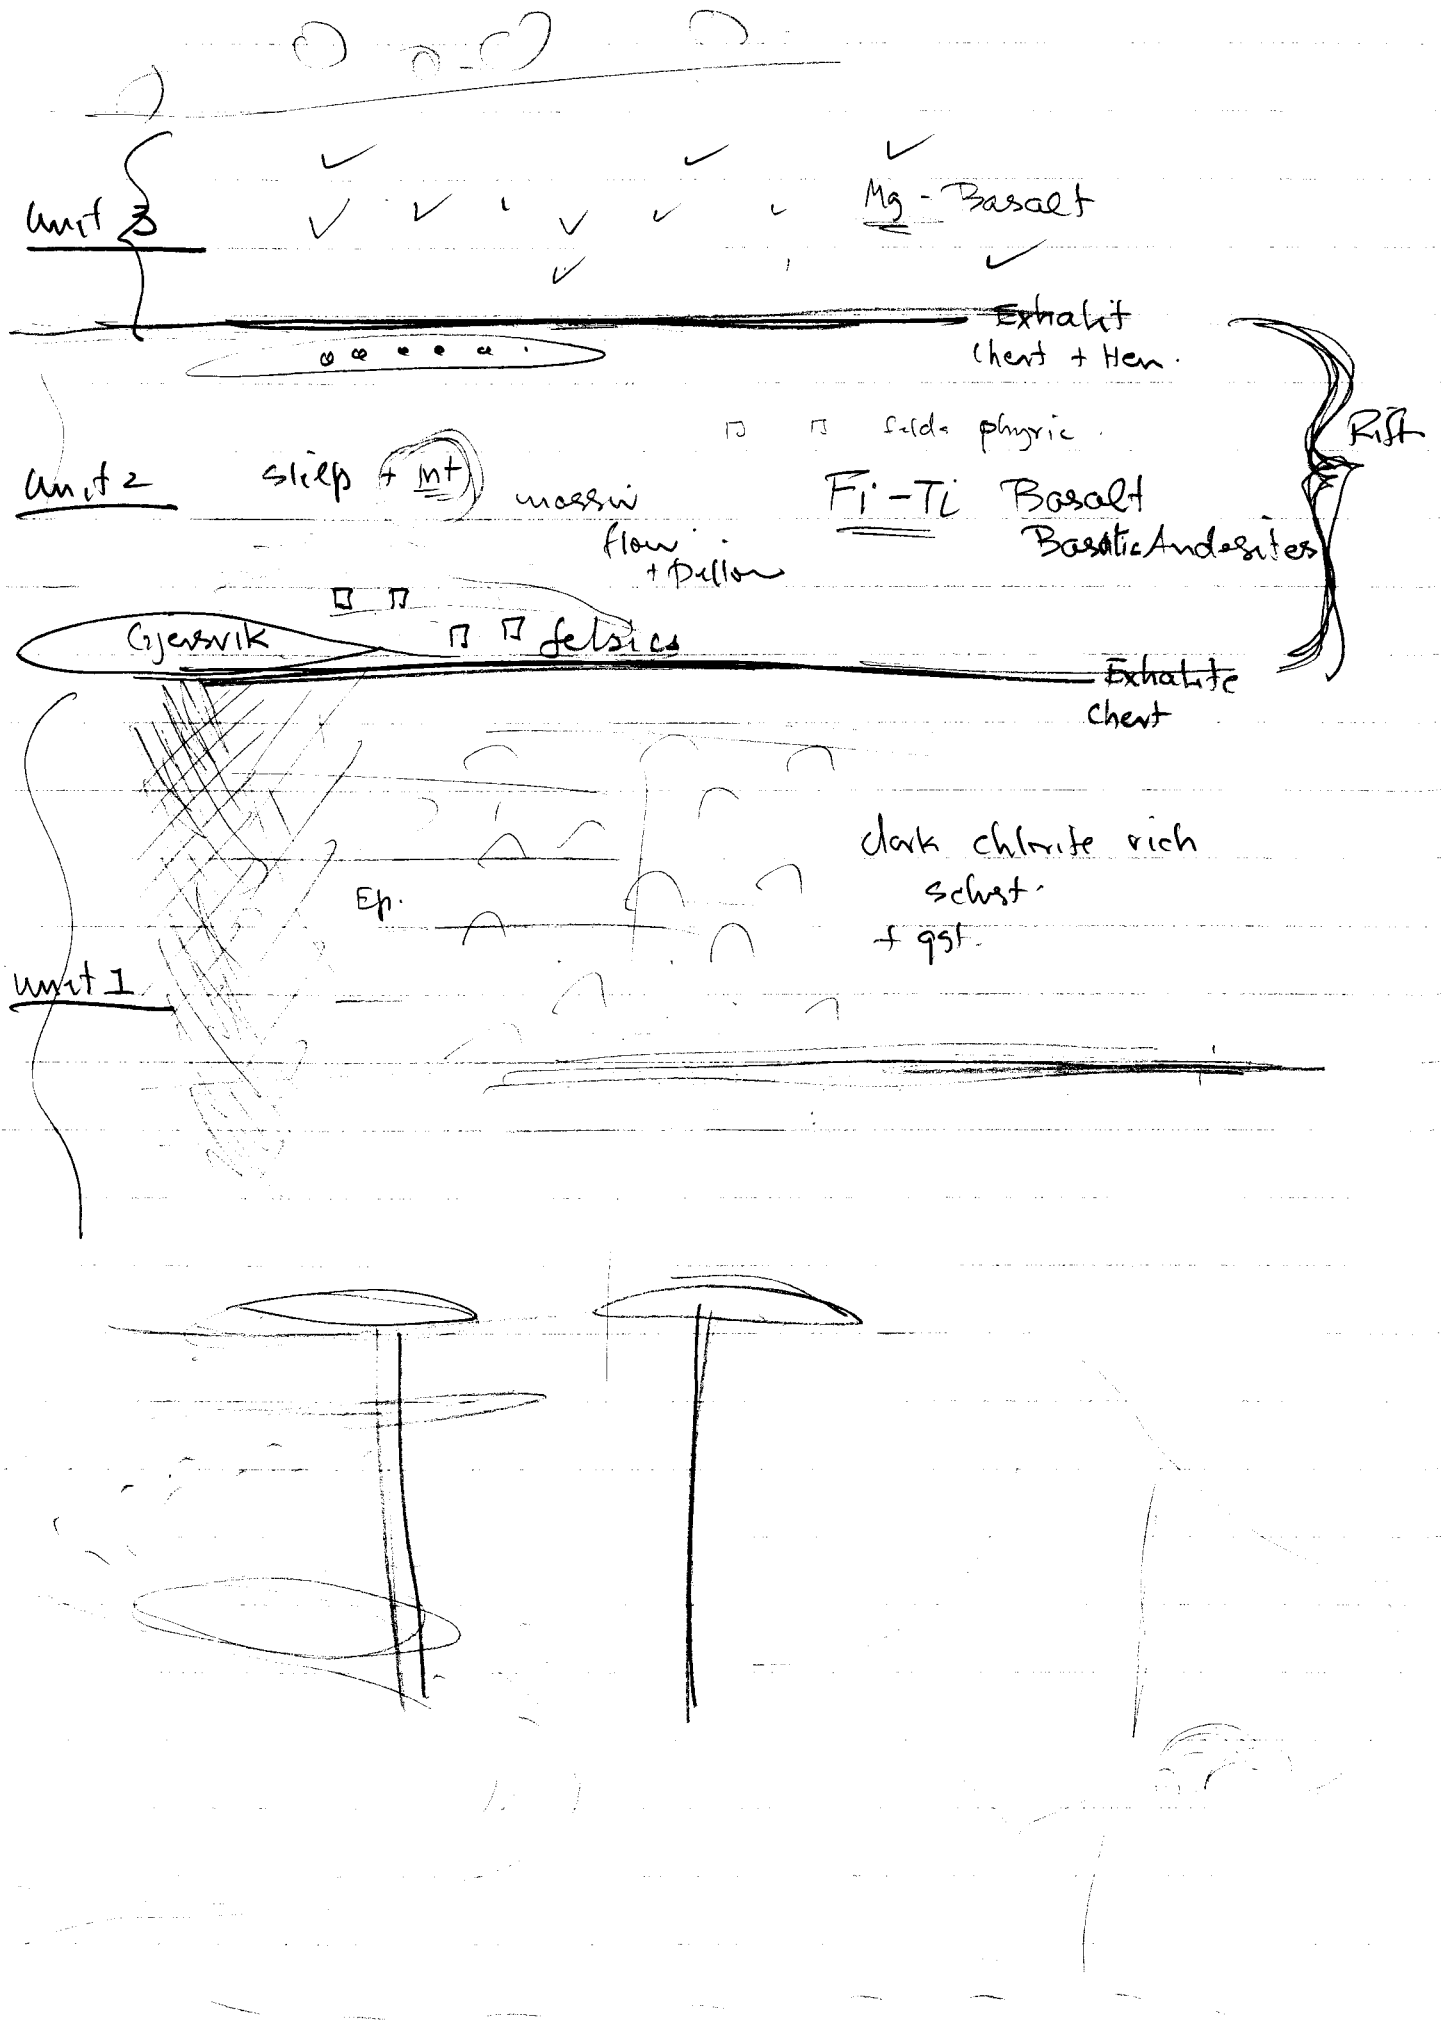 Unit 3
Mg - Basalt
Exhalit
Chert + Hem.
felds phyric.
Rift
Unit 2
stilp + mt
massiv
flow
+ Pillow
Fi-Ti Basalt
Basaltic Andesites
Gjersvik
felsics
Exhalite
Chert
dark chlorite rich
schst.
+ qst.
Ep.
unit 1